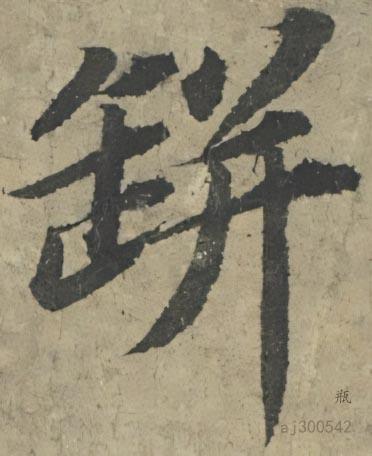 缾
瓶
aj300542